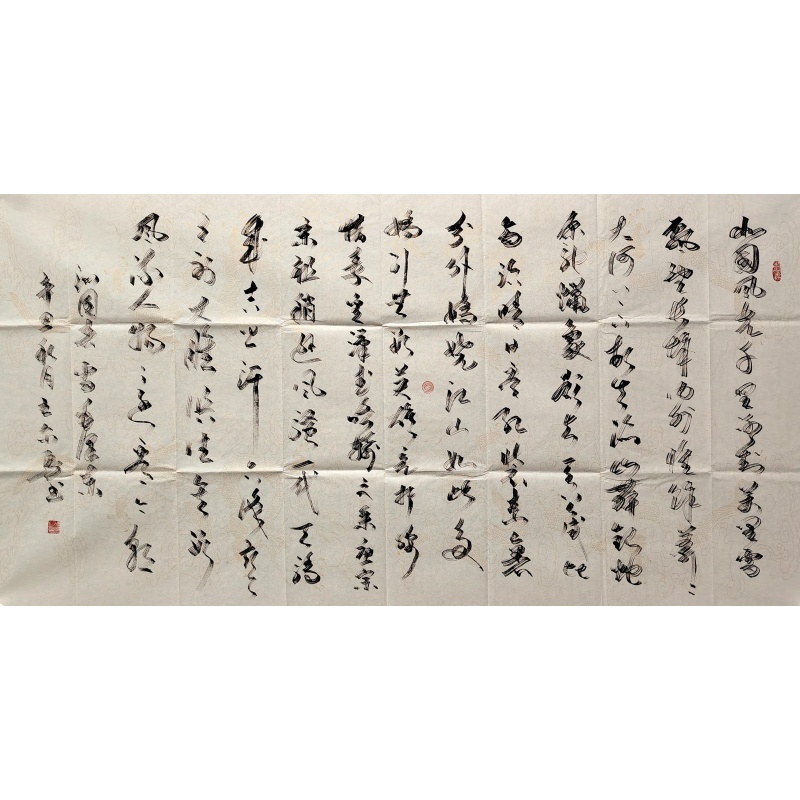 北国风光千里冰封万里雪
飘望长城内外惟馀莽〻
大河上下顿失滔滔山舞银蛇
原驰蜡象欲与天公试比
高须晴日看红装素裹
分外妖娆江山如此多
娇引无数英雄竞折腰
惜秦皇汉武略输文采唐宗
宋祖稍逊风骚一代天骄
成吉思汗只识弯弓
射大雕俱往矣数
风流人物还看今朝
沁园春雪毛泽东
辛丑秋月书